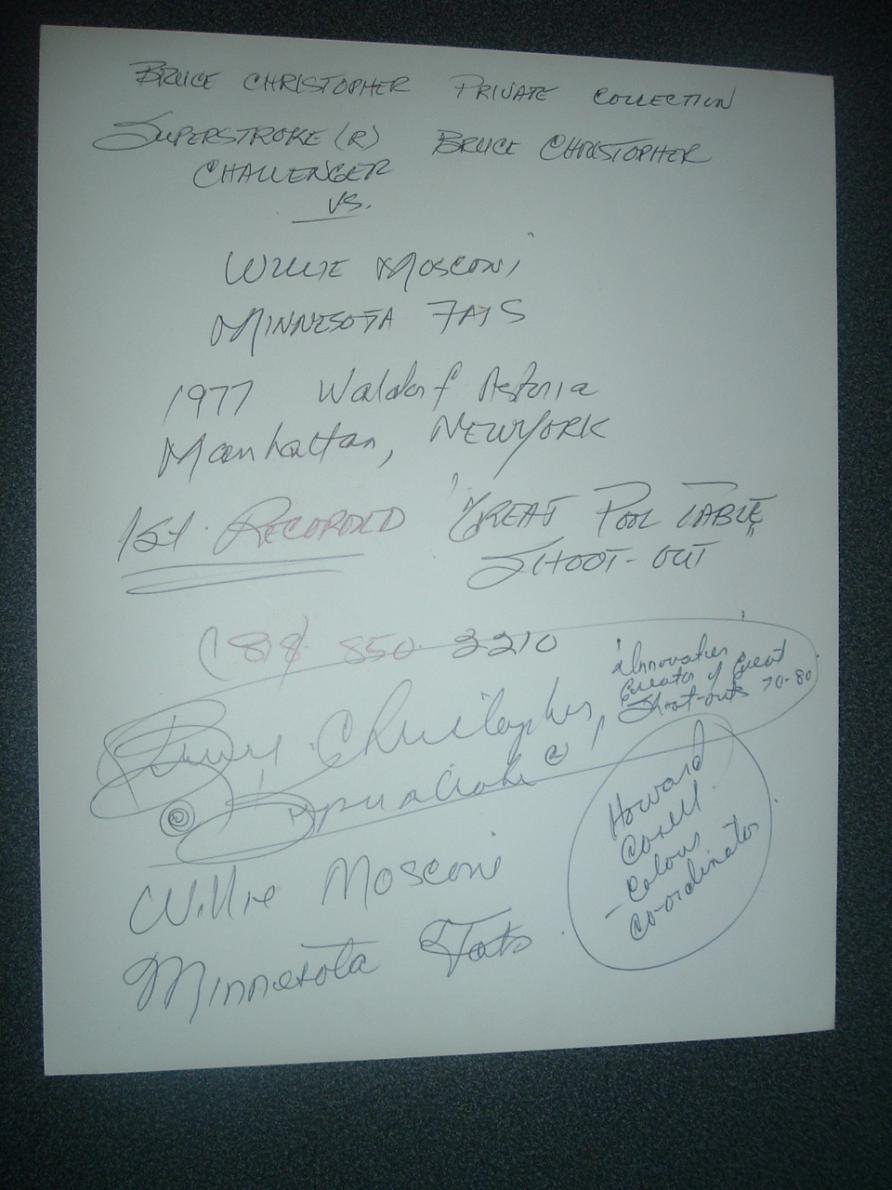 BRUCE CHRISTOPHER PRIVATE COLLECTION
SUPERSTROKE (R) BRUCE CHRISTOPHER
CHALLENGER
VS.
WILLIE MOSCONI
MINNESOTA FATS
1977 Waldorf Astoria
Manhattan, NEWYORK
1st. RECORDED "GREAT POOL TABLE
SHOOT-OUT"
(818) 850-3210
Innovator,
Creator of Great
Shoot-outs 70-80
Bruce Christopher,
Superstroke (R)
Howard
Cosell
- Colour
Co-ordinator
Willie Mosconi
Minnesota Fats